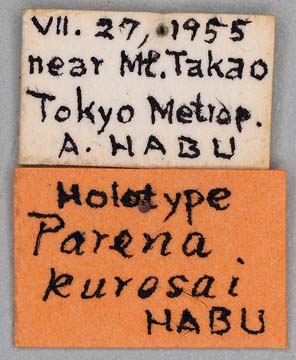 VII. 27, 1955
near Mt. Takao
Tokyo Metrop.
A. HABU
Holotype
Parena
kurosai
HABU